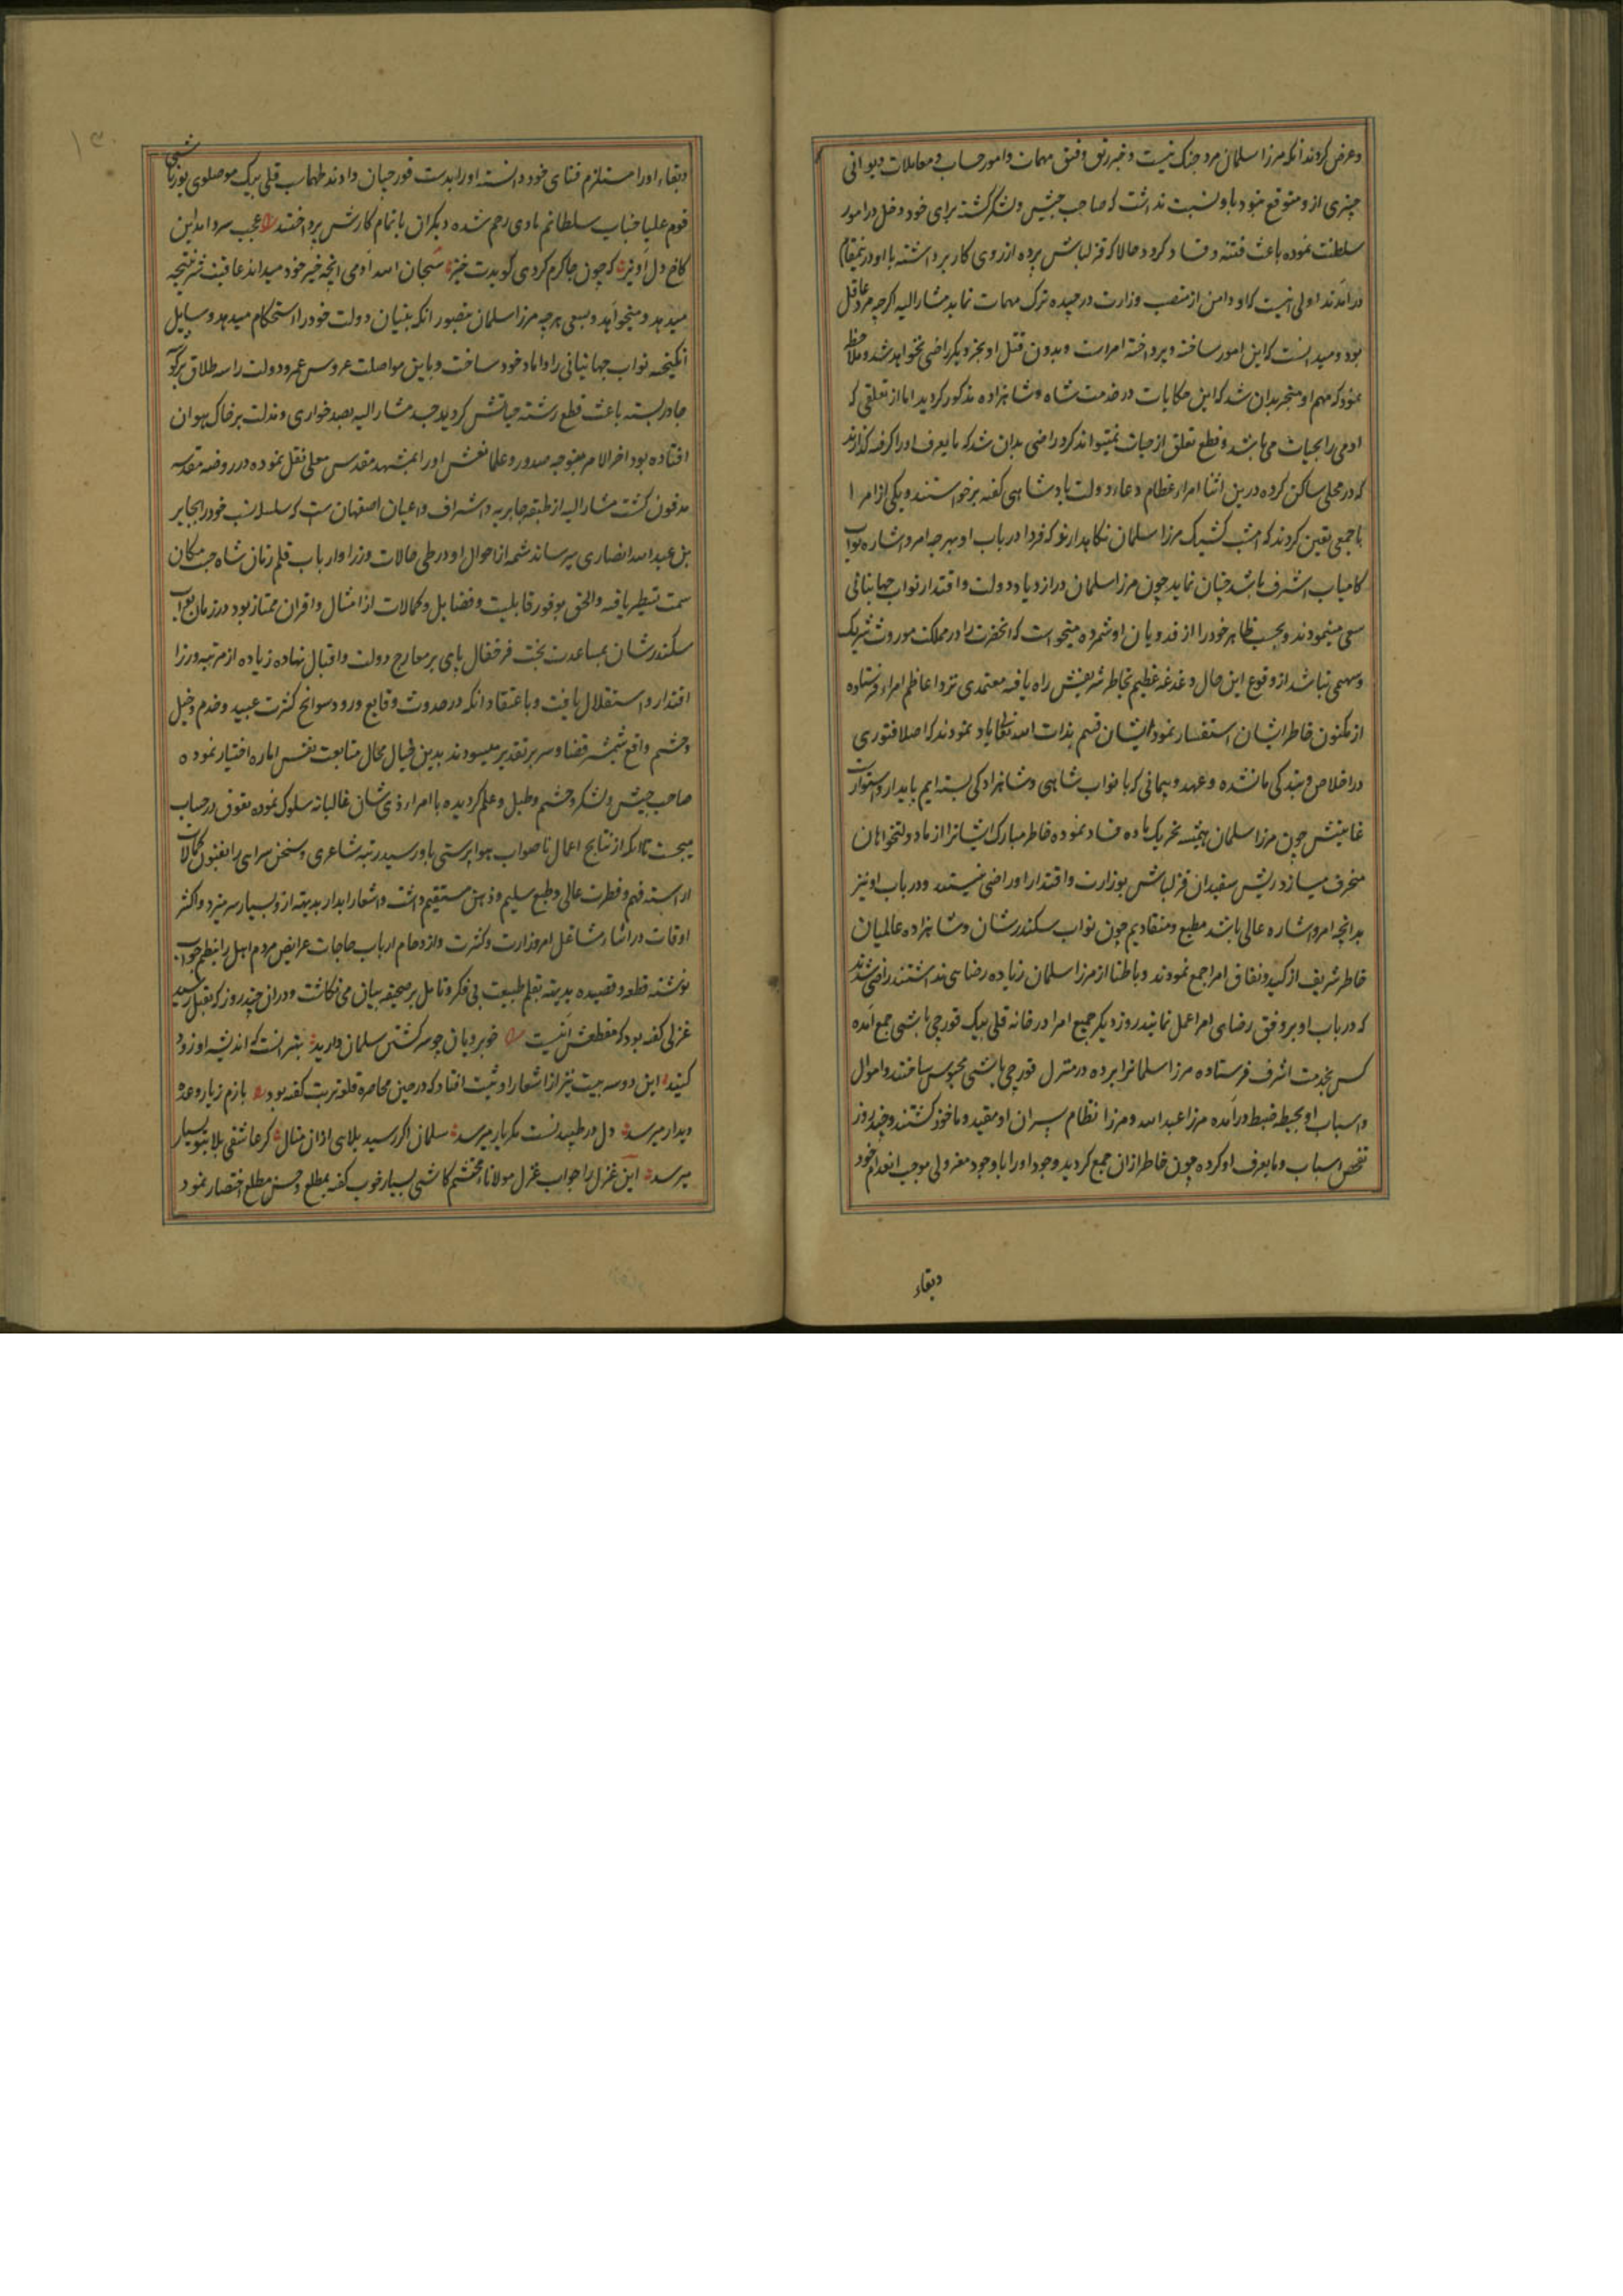 و عرض کردند آنکه مرزا سلمان مرد جنک نیست و غیر رتق و فتق مهمات و امور حساب و معاملات دیوانی
چیزی ازو متوقع نبود باو نسبت نداشت که صاحب جیش و لشکر کشته برای خود دخل در امور
سلطنت نموده باعث فتنه و فساد کردد حالا که قزلباش پرده از روی کار برداشته با او درینمقام
درآمدند اولی انیست که او دامن از منصب وزارت درچیده ترک مهمات نماید مشارالیه اکرچه مرد عاقل
بود و میدانست که این امور ساخته و پرداخته امراست و بدون قتل او بچیز دیکر راضی نخواهد شد و ملاحظه
نمود که مهم او منجر بدان شد که این حکایات در خدمت شاه و شاهزاده مذکور کردید اما از تعلقی که
ادمی را بحیات می باشد و قطع تعلق از حیات نمیتواند کرد راضی بدان شد که مایعرف او را کرفته کذارند
که در محلی ساکن کردد درین اثنا امراء عظام دعاء دولت پادشاهی کفته برخواستند و یکی از امرا
با جمعی تعین کردند که امشب کشیک مرزا سلمان نکاهدار تو که فردا در باب او بهرچه امر و اشاره نواب
کامیاب اشرف باشد چنان نماید چون مرزا سلمان در ازدیاد دولت و اقتدار نواب جهانبانی
سعی مینمودند و بحسب ظاهر خود را از فدویان او شمرده میخواست که انحضرت را در مملکت موروث شریک
و سهمی نباشد از وقوع این حال دغدغه عظیم بخاطر شریفش راه یافته معتمدی نزد اعاظم امراء فرستاده
از مکنون خاطر ایشان استفسار نمود ایشان قسم بذات الله تعالی یاد نمودند که اصلا فتوری
در اخلاص و بندکی ما نشده و عهد و پیمانی که با نواب شاهی و شاهزادکی بسته ایم پایدار و استوار است
غایتش چون مرزا سلمان همیشه تحریک ماده فساد نموده خاطر مبارک ایشانرا از ما دولتخواهان
منحرف میسازد ریش سفیدان قزلباش بوزارت و اقتدار او راضی نیستند و در باب او نیز
بدانچه امر و اشاره عالی باشد مطیع و منقادیم چون نواب سکندرشان و شاهزاده عالمیان
خاطر شریف از کید و نفاق امرا جمع نمودند و باطنا از مرزا سلمان زیاده رضایی نداشتند راضی شدند
که در باب او بر وفق رضای امرا عمل نمایند روز دیکر جمیع امرا در خانه قلی بیک قورچی باشی جمع آمده
کس بخدمت اشرف فرستاده مرزا سلمانرا برده در منزل قورچی باشی محبوس ساختند و اموال
و اسباب او بحیطه ضبط درآمده مرزا عبدالله و مرزا نظام پسران او مقید و ماخوذ کشتند و چند روز
تفحص اسباب و مایعرف او کرده چون خاطر ازان جمع کردید وجود او را با وجود معزولی موجب انعدام خود
وبقاء
وبقاء او را مستلزم فنای خود دانسته او را بدست قورچیان دادند طهماسب قلی بیک موصلوی یوزباشی
قوم علیا جناب سلطانم هادی رحم شده دیکران باتمام کارش پرداختند عجب سروامد این
کاخ دل اویز که چون جا کرم کردی کویدت خیز سبحان الله آدمی انچه خیر خود میداند عاقبت شر نتیجه
میدهد و میخواهد و بسعی هرچه مرزا سلمان بتصور انکه بنیان دولت خود را استحکام میدهد وسایل
انکیخته نواب جهانبانی را داماد خود ساخت و باین مواصلت عروس عمر و دولت را سه طلاق بر کوشه
چادر بسته باعث قطع رشته حیاتش کردید جسد مشارالیه بصد خواری و مذلت بر خاک هوان
افتاده بود اخر الامر بتوجه صدور و علما نعش او را بمشهد مقدس معلی نقل نموده در روضه مقدسه
مدفون کشت مشارالیه از طبقه جابریه و اشراف و اعیان اصفهان ست که سلسله نسب خود را بجابر
بن عبدالله انصاری میرساند شمه از احوال او در طی حالات وزرا و ارباب قلم زمان شاه جنت مکان
سمت تسطیر یافته والحق بوفور قابلیت و فضایل و کمالات از امثال و اقران ممتاز بود در زمان نواب
سکندرشان بمساعدت بخت فرخفال پای بر معارج دولت و اقبال نهاده زیاده از مرتبه وزرا
اقتدار و استقلال یافت و باعتقاد انکه در حدوث وقایع و ورود سوانح کثرت عبید و خدم و خیل
و حشم دافع شمشیر قضا و سپر تقدیر میشودند بدین خیال محال متابعت نفس اماره اختیار نموده
صاحب جیش و لشکر و حشم و طبل و علم کردیده با امراء ذی شان غالبانه سلوک نموده تفوق در حساب
میجست تا انکه از نتایج اعمال ناصواب هواپرستی باو رسید رتبه شاعری و سخن سرای را بفنون کمالات
اراسته فهم و فطرت عالی و طبع سلیم و ذهن مستقیم داشت و اشعار ابدار بدیهه ازو بسیار سر میزد و اکثر
اوقات در اثنا مشاغل امر وزارت و کثرت و ازدحام ارباب حاجات عرایض مردم اهل را بنظم جواب
نوشته قطعه و قصیده بدیهه بقلم طبیعت بی فکر و تامل بر صحیفه بیان می نکاشت و دران چند روز که بقتل رسید
غزلی کفته بود که مقطعش اینست خوبرویان چو سر کشتن سلمان دارید بهتر انست که اندیشه او زود
کنید این دو سه بیت نیز از اشعار او ثبت افتاد که در حین محاصره قلعه تربت کفته بود بازم زیار وعده
دیدار میرسد دل در طپیدنست مکر یار میرسد سلمان اکر رسید بلایی ازان منال کر عاشقی بلا بتو بسیار
میرسد این غزل را جواب غزل مولانا محتشم کاشی بسیار خوب کفته بمطلع و حسن مطلع اختصار نمود